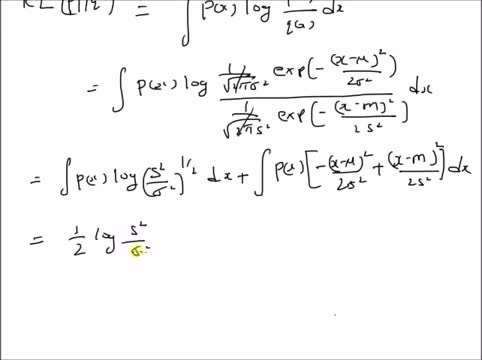 KL(p||q) = ∫ p(x) log p(x)/q(x) dx
= ∫ p(x) log (1/√(2πσ²) exp(-(x-μ)²/2σ²)) / (1/√(2πs²) exp(-(x-m)²/2s²)) dx
= ∫ p(x) log (s²/σ²)^(1/2) dx + ∫ p(x) [-(x-μ)²/2σ² + (x-m)²/2s²] dx
= 1/2 log s²/σ²